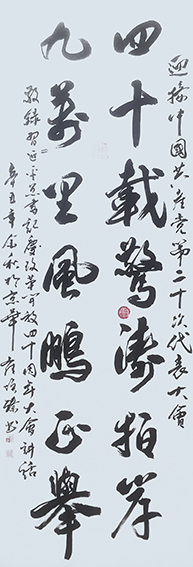 迎接中國共产党第二十次代表大會
四十載驚濤拍岸
九萬里風鵬正舉
敬録習近平总書記慶祝改革開放四十周年大會讲话
辛丑年金秋於京華